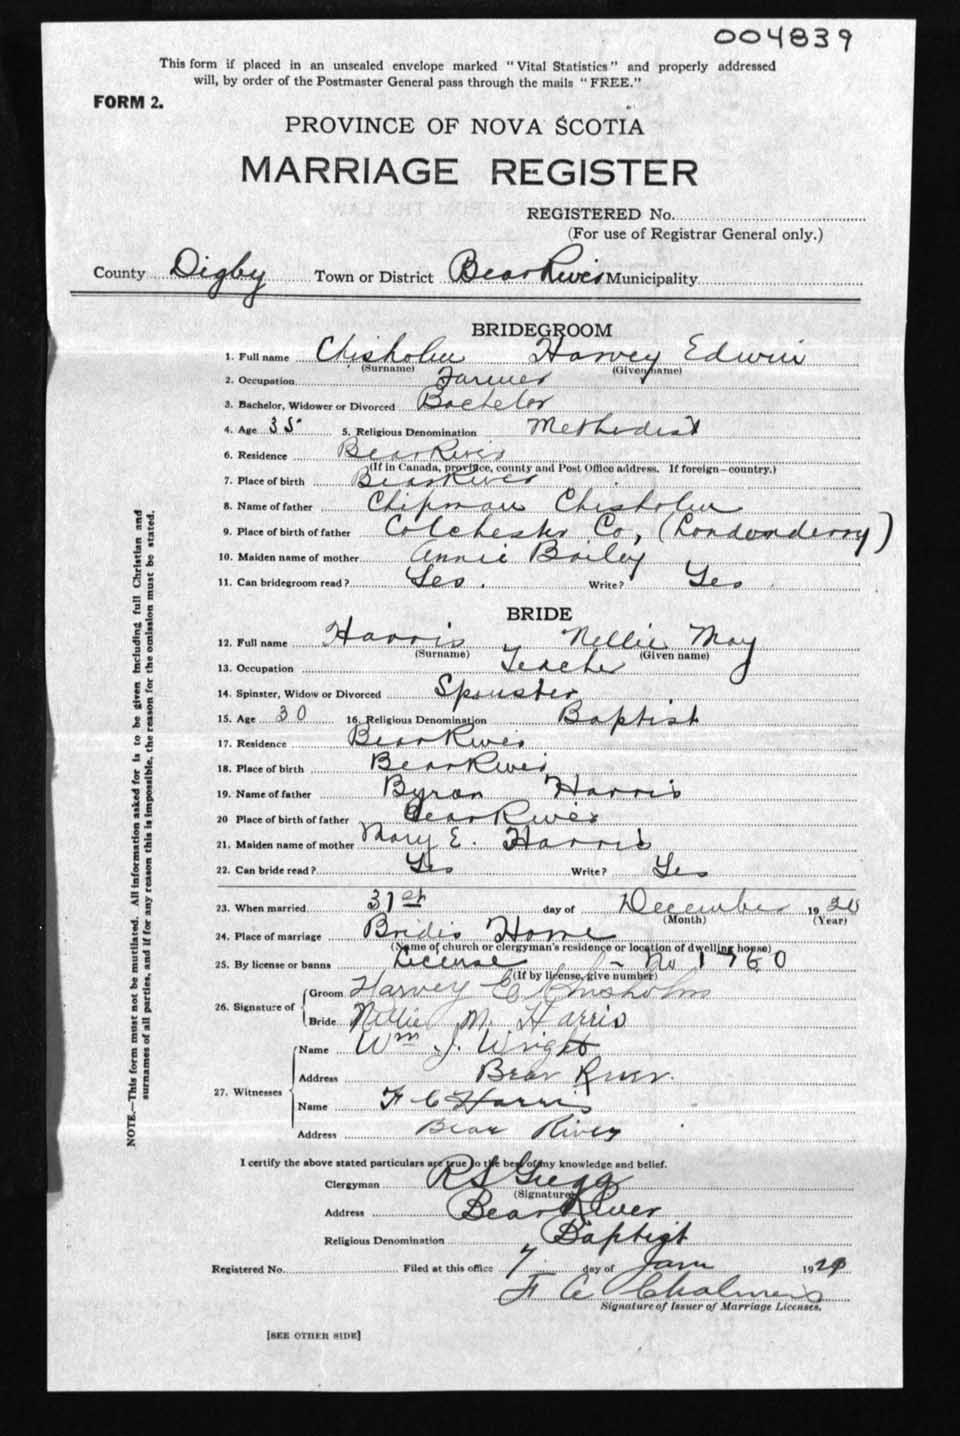 004839
This form if placed in an unsealed envelope marked "Vital Statistics" and properly addressed
will, by order of the Postmaster General pass through the mails "FREE."
FORM 2.
PROVINCE OF NOVA SCOTIA
MARRIAGE REGISTER
REGISTERED No.
(For use of Registrar General only.)
County Digby Town or District Bear River Municipality
BRIDEGROOM
1. Full name Chisholm Harvey Edwin
(Surname) (Given name)
2. Occupation Farmer
3. Bachelor, Widower or Divorced Bachelor
4. Age 35 5. Religious Denomination Methodist
6. Residence Bear River
(If in Canada, province, county and Post Office address. If foreign—country.)
7. Place of birth Bear River
8. Name of father Chipman Chisholm
9. Place of birth of father Colchester Co, (Londonderry)
10. Maiden name of mother Annie Bailey
11. Can bridegroom read? Yes. Write? Yes
BRIDE
12. Full name Harris Nellie May
(Surname) (Given name)
13. Occupation Teacher
14. Spinster, Widow or Divorced Spinster
15. Age 30 16. Religious Denomination Baptist
17. Residence Bear River
18. Place of birth Bear River
19. Name of father Byron Harris
20 Place of birth of father Bear River
21. Maiden name of mother Mary E. Harris
22. Can bride read? Yes Write? Yes
23. When married 31st day of December 1920
(Month) (Year)
24. Place of marriage Brides Home
(Name of church or clergyman's residence or location of dwelling house)
25. By license or banns License - No 1760
(If by license, give number)
26. Signature of Groom Harvey E Chisholm
Bride Nellie M. Harris
27. Witnesses Name Wm J. Wright
Address Bear River.
Name F C Harris
Address Bear River
I certify the above stated particulars are true to the best of my knowledge and belief.
Clergyman R S Gregg
(Signature)
Address Bear River
Religious Denomination Baptist
Registered No. Filed at this office 7 day of Jan 1921
F A Chalmers
Signature of Issuer of Marriage Licenses.
[SEE OTHER SIDE]
NOTE.—This form must not be mutilated. All information asked for is to be given including full Christian and
surnames of all parties, and if for any reason this is impossible, the reason for the omission must be stated.